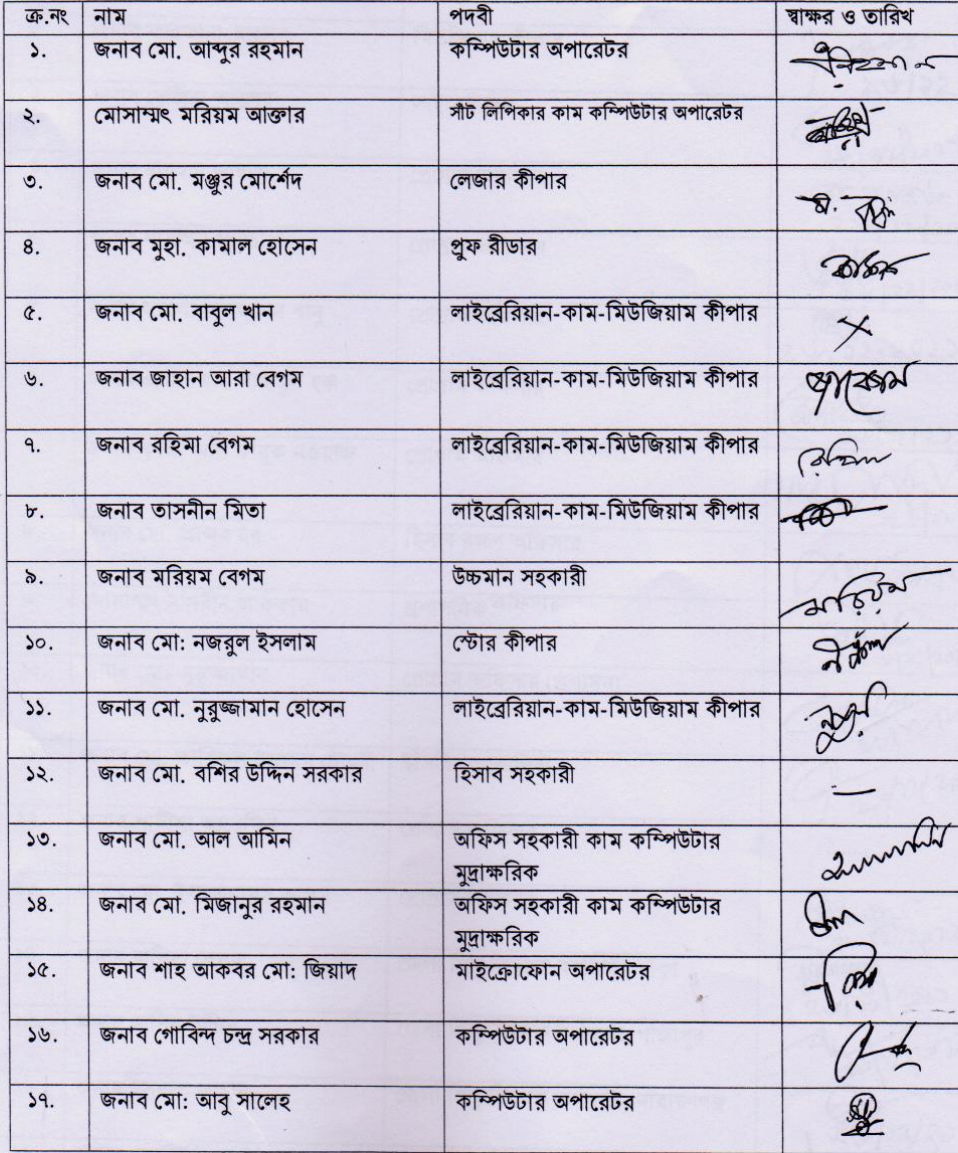 ক্র.নং নাম পদবী স্বাক্ষর ও তারিখ
১. জনাব মো. আব্দুর রহমান কম্পিউটার অপারেটর
২. মোসাম্মৎ মরিয়ম আক্তার সাঁট লিপিকার কাম কম্পিউটার অপারেটর
৩. জনাব মো. মঞ্জুর মোর্শেদ লেজার কীপার
৪. জনাব মুহা. কামাল হোসেন প্রুফ রীডার
৫. জনাব মো. বাবুল খান লাইব্রেরিয়ান-কাম-মিউজিয়াম কীপার
৬. জনাব জাহান আরা বেগম লাইব্রেরিয়ান-কাম-মিউজিয়াম কীপার
৭. জনাব রহিমা বেগম লাইব্রেরিয়ান-কাম-মিউজিয়াম কীপার
৮. জনাব তাসনীন মিতা লাইব্রেরিয়ান-কাম-মিউজিয়াম কীপার
৯. জনাব মরিয়ম বেগম উচ্চমান সহকারী মরিয়ম
১০. জনাব মো: নজরুল ইসলাম স্টোর কীপার
১১. জনাব মো. নুরুজ্জামান হোসেন লাইব্রেরিয়ান-কাম-মিউজিয়াম কীপার
১২. জনাব মো. বশির উদ্দিন সরকার হিসাব সহকারী
১৩. জনাব মো. আল আমিন অফিস সহকারী কাম কম্পিউটার
মুদ্রাক্ষরিক
১৪. জনাব মো. মিজানুর রহমান অফিস সহকারী কাম কম্পিউটার
মুদ্রাক্ষরিক
১৫. জনাব শাহ আকবর মো: জিয়াদ মাইক্রোফোন অপারেটর
১৬. জনাব গোবিন্দ চন্দ্র সরকার কম্পিউটার অপারেটর
১৭. জনাব মো: আবু সালেহ কম্পিউটার অপারেটর